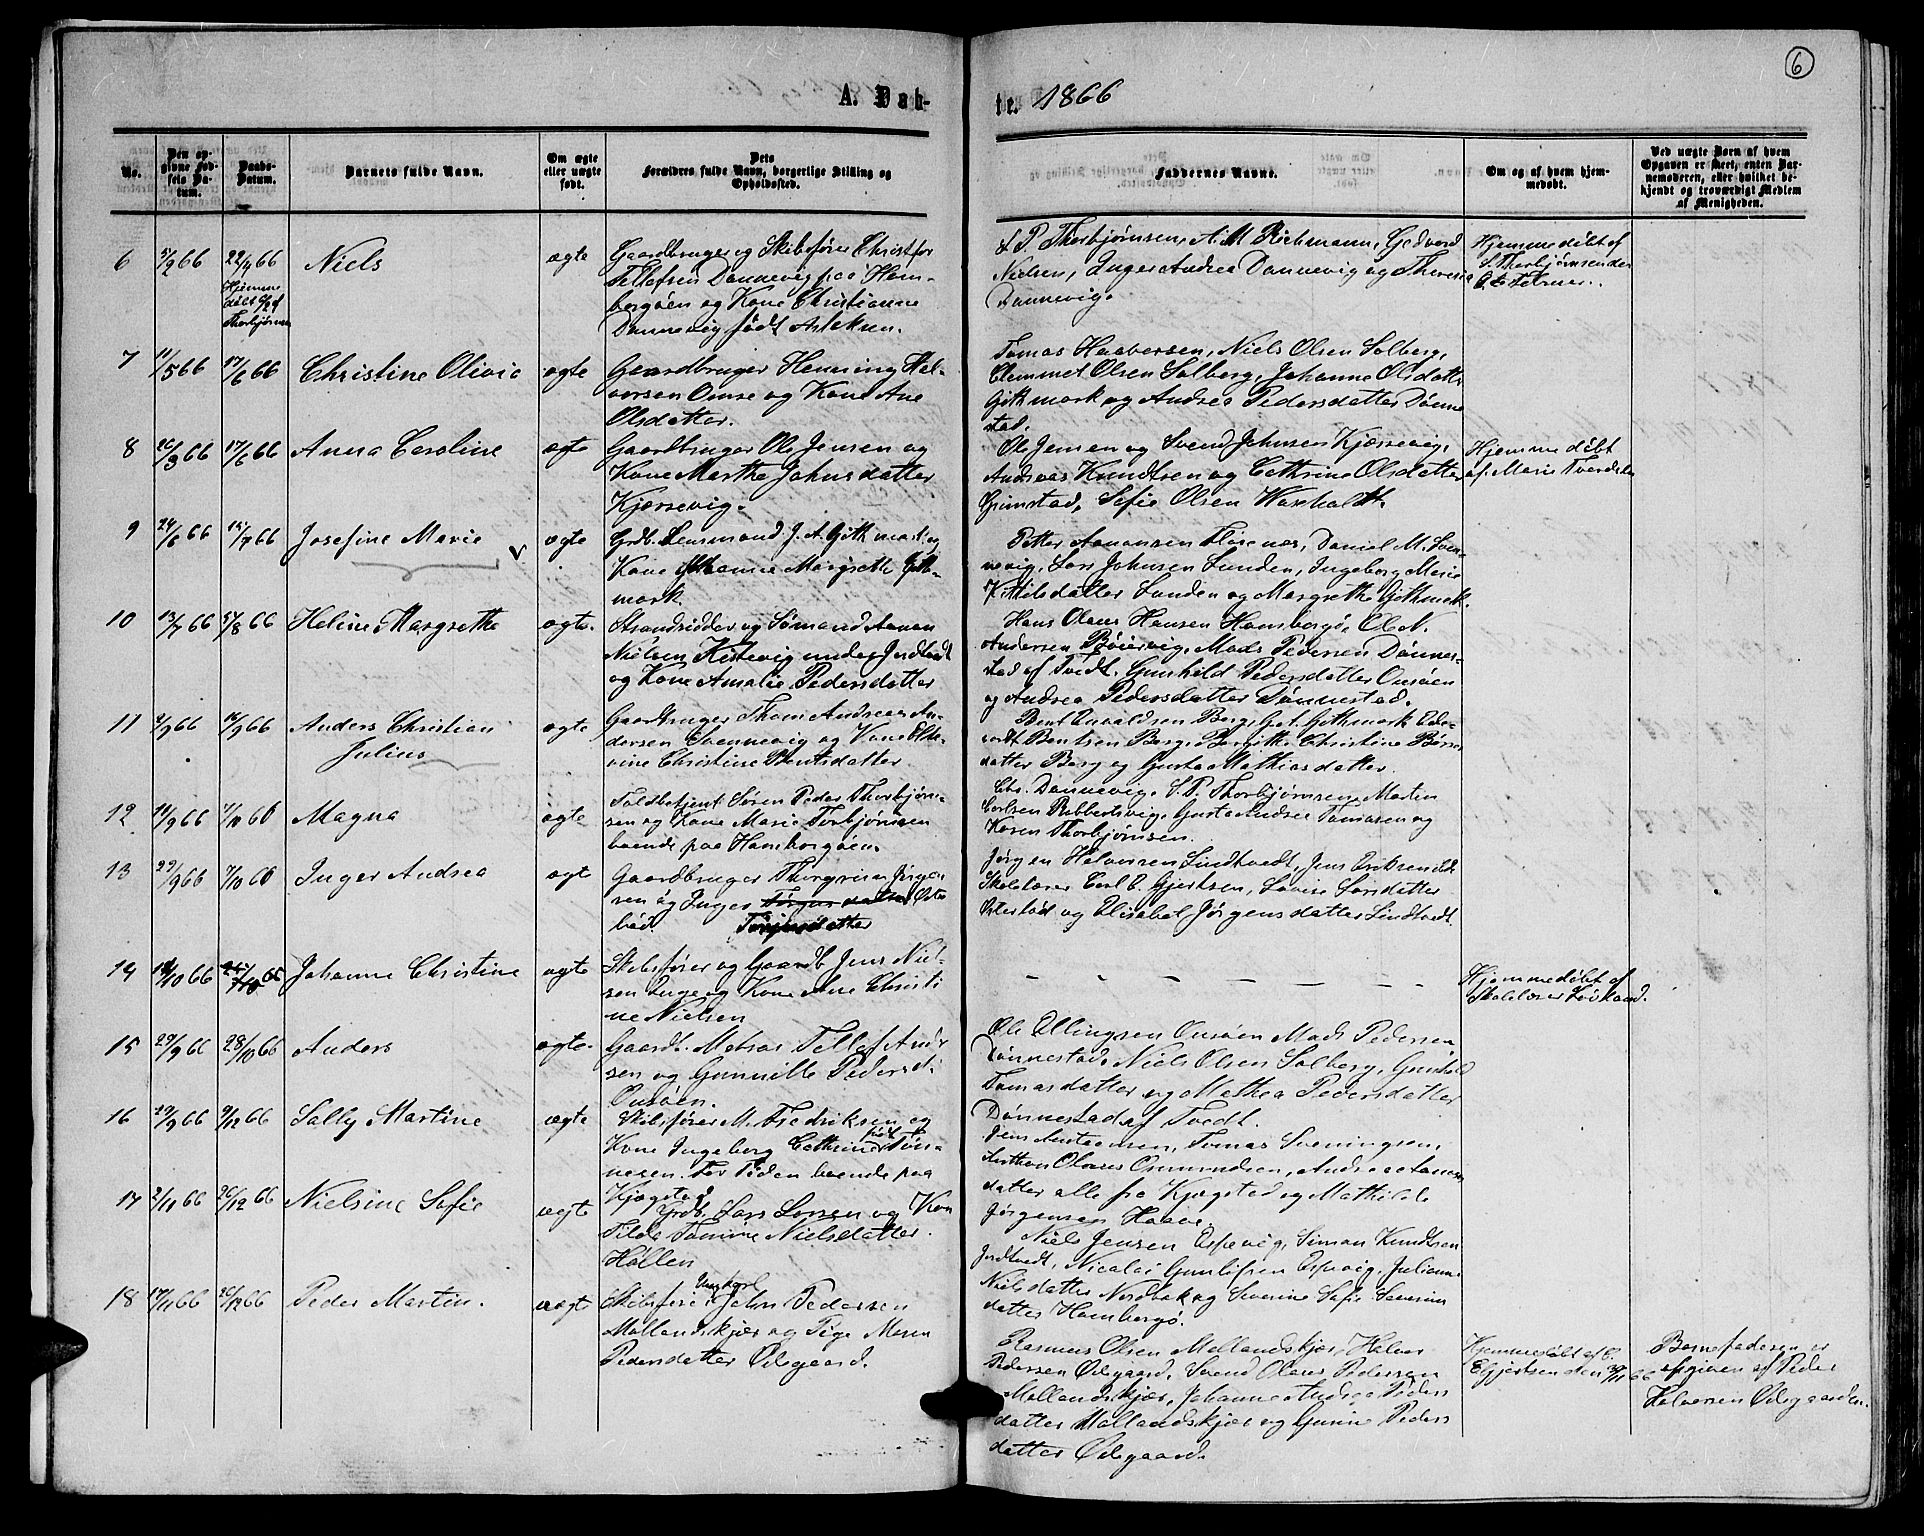 6
A. Døb-
te. 1866
No.
Den op-
givne Fød-
sels Da-
tum.
Daabs-
Datum.
Barnets fulde Navn.
Om ægte
eller uægte
født.
Dets
Forældres fulde Navn, borgerlige Stilling og
Opholdssted.
Faddernes Navne.
Om og af hvem hjem-
medøbt.
Ved uægte Børn af hvem
Opgaven er skeet, enten Bar-
nemoderen, eller hvilket be-
kjendt og troværdigt Medlem
af Menigheden.
6 5/2 66 22/4 66 Niels ægte
Hjemme
døbt af
Thorbjørnsen
Gaardbruger og Skibsfører Christofer
Tellefsen Dannevig paa Hom-
borgøen og Kone Christianne
Dannevig født Aslaksen.
S. P. Thorbjørnsen, A. M. Richmann, Gedvard
Nielsen, Inger Andrea Dannevig og Theresia
Dannevig.
Hjemmedøbt af
S. Thorbjørnsen den
Februar.
7 11/5 66 17/6 66 Christine Olivie ægte
Gaardbruger Henning Hal-
vorsen Omre og Kone Ane
Olsdatter.
Tomas Haaversen, Niels Olsen Solberg,
Clemmet Olsen Solberg, Johanne Olsdatter
Githmark og Andrea Pedersdatter Dønne-
stad.
8 26/3 66 17/6 66 Anna Caroline ægte
Gaardbruger Ole Jensen og
Kone Marthe Johnsdatter
Kjærrevig.
Ole Jensen og Svend Johnsen Kjærrevig,
Andreas Knudtsen og Cathrine Olsdatter
Grimstad, Sofie Olsen Waxholdt.
Hjemmedøbt
af Marie
9 24/6 66 15/7 66 Josefine Marie ægte
Grdb. Lensmand J. A. Githmark og
Kone Johanne Margrethe Gith-
mark.
Petter Aanonsen Flørenes, Daniel M. Sven-
nevig, Lars Johnsen Lunden, Ingeborg Marie
Nilsdatter Lunden og Margrethe Githmark.
10 13/7 66 5/8 66 Heline Margrethe ægte.
Strandsidder og Sømand Aanon
Nielsen Kistevig under Indtvedt
og Kone Amalie Pedersdatter
Hans Olaus Hansen Homborgø, Ole N.
Andersen Bøiervig, Mads Pedersen Dønne-
stad af Tvedt, Gunhild Pedersdatter Omøen
og Andrea Pedersdatter Dønnestad.
11 2/9 66 16/9 66 Anders Christian ægte
Julius
Gaardbruger Thom Andreas An-
dersen Svennevig og Kone Else-
vine Christine Bentsdatter
Bent Osvaldsen Berg, G. A. Githmark Ede-
vardt Bentsen Berg, Bergithe Christine Børre-
datter Berg og Gusta Mathiasdatter.
12 11/9 66 7/10 66 Magna ægte
Toldbetjent Søren Peder Thorbjørn-
sen og Kone Marie Torbjørnsen
boende paa Homborgøen.
Chr. Dannevig, S. P. Thorbjørnsen, Martin
Carlsen Ribbertsvig, Gusta Andrea Tomasen og
Karen Thorbjørnsen.
13 22/9 66 7/10 66 Inger Andrea ægte
Gaardbruger Thorgrim Jørgen-
sen og Inger Øster-
hød.
Jørgen Halvorsen Lindtvedt, Jens Eriksen ibd.
Skolelærer Carl E. Gjertsen, Lovise Larsdatter
Østerhød og Elisabet Jørgensdatter Lindtvedt
14 Johanne Christine ægte
Skibsfører og Gaardb Jens Niel-
sen Inge og Kone Ane Christi-
ne Nielsen
Hjemmedøbt af
Skolelærer Løvland.
15 29/9 66 28/10 66 Anders ægte.
Gaardb. Matros Tellef Andr-
sen og Gunnille Pedersd.
Omøen.
Ole Ellingsen Omøen Mads Pedersen
Dønnestad, Niels Olsen Solberg, Gunhild
Tomasdatter og Mathea Pedersdatter
Dønnestad af Tvedt.
16 29/9 66 9/12 66 Sally Martine ægte
Skibsfører M. Fredriksen og
Kone Ingeborg Cathrine født Tøn-
nesen. For Tiden boende paa
Kjøgstad
Tomas Sveningsen,
Anthon Olaus Osmundsen, Andrea Aanons-
datter alle fra Kjøgstad og Mathilde
Jørgensen Haave.
17 2/11 66 26/12 66 Nielsine Sofie ægte
Grdb. Lars Larsen og Kone
Tilde Tomine Nielsdatter.
Høllen
Niels Jensen Espevig, Simon Knudtsen
Indtvedt, Nicolai Gunlifsen Espevig, Julianne
Nielsdatter Nordbak og Severine Sofie Severin-
datter Homborgø.
18 17/11 66 26/12 66 Peder Martin. uægte
Skibsfører Ungkarl John Pedersen
Mollandskjær og Pige Maren
Pedersdatter Ødegaard.
Rasmus Olsen Mollandskjær, Halvor
Pedersen Ødegaard, Svend Olaus Pedersen
Mollandskjær, Johanne Andrea Peders-
datter Mollandskjær og Gurine Peders-
datter Ødegaard.
Hjemmedøbt af C.
E. Gjertsen den 66
Barnefaderen er
opgiven af Peder
Halvorsen Ødegaarden.